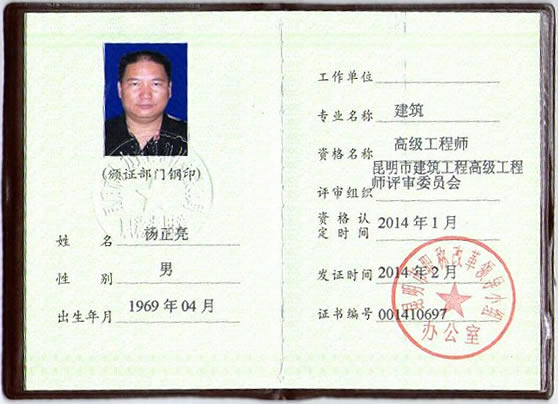 (颁证部门钢印)
姓 名 杨正亮
性 别 男
出生年月 1969 年 04 月
工作单位
专业名称 建筑
资格名称 高级工程师
昆明市建筑工程高级工程
评审组织 师评审委员会
资格认
定时间 2014 年 1 月
发证时间 2014 年 2 月
证书编号 001410697
昆明市职称改革领导小组
办公室